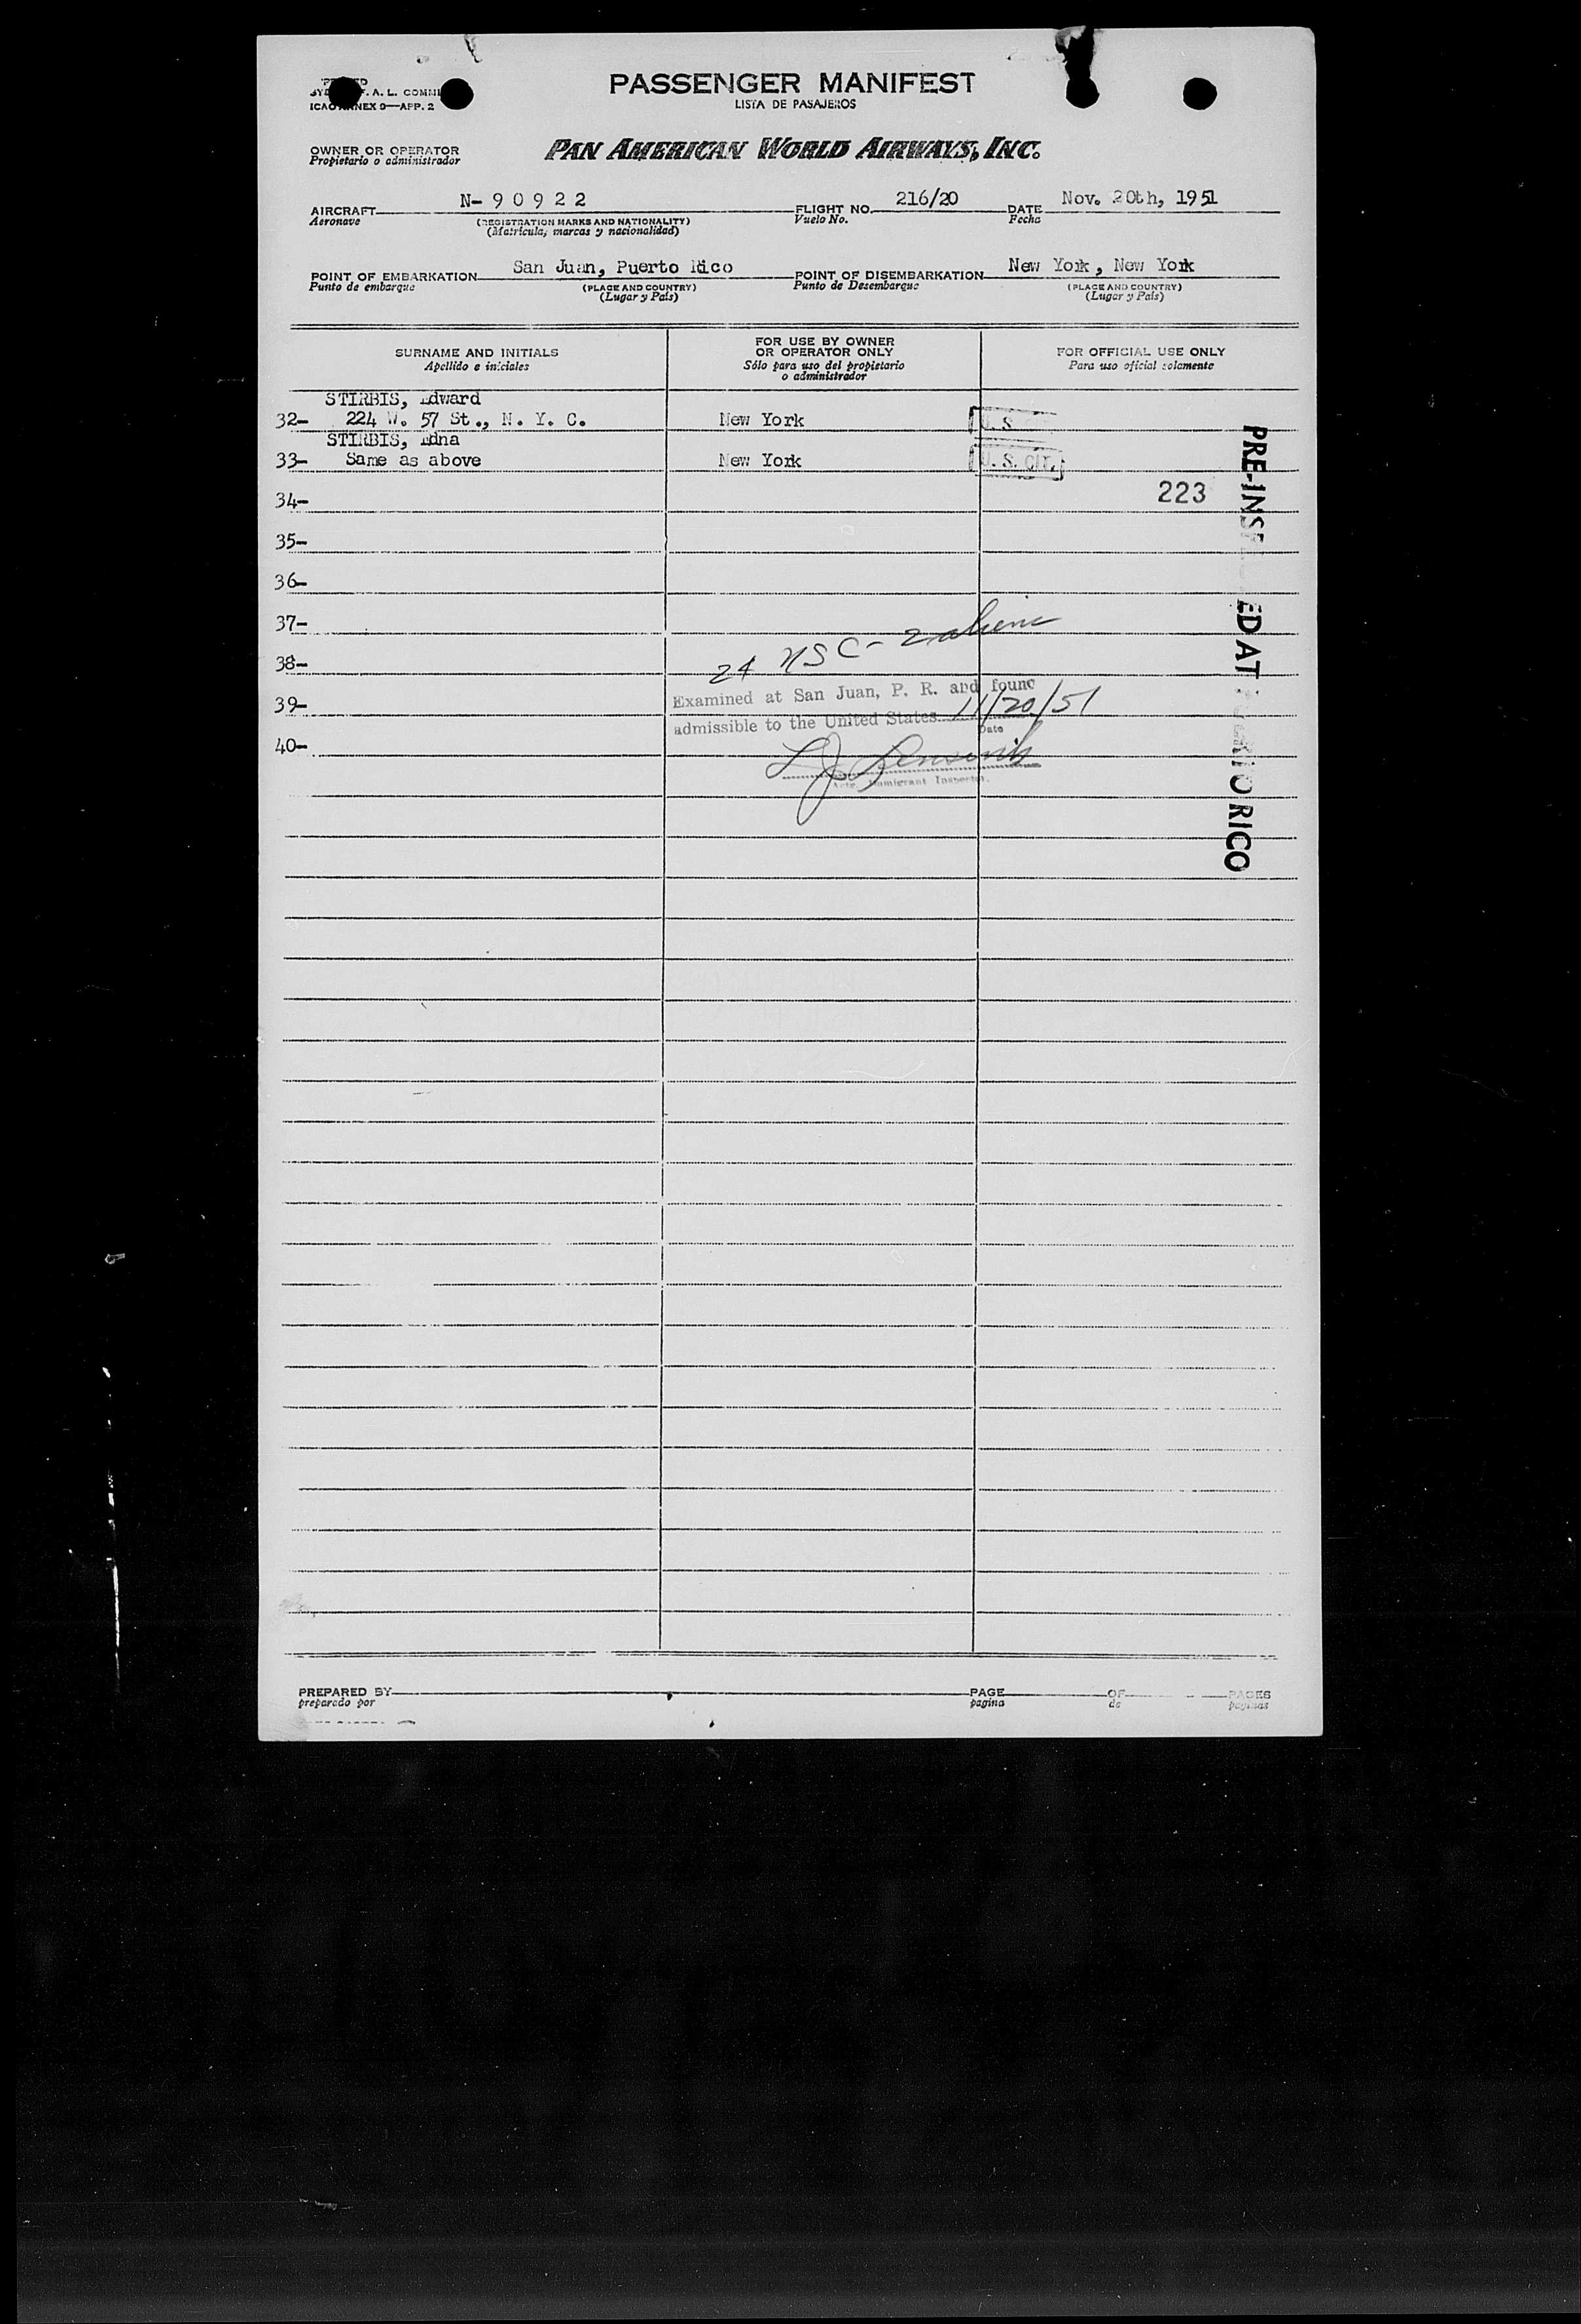 PASSENGER MANIFEST
LISTA DE PASAJEROS
F. A. L. COMMI
ICAO ANNEX 9—APP. 2
OWNER OR OPERATOR
Propietario o administrador
PAN AMERICAN WORLD AIRWAYS, INC.
AIRCRAFT N- 9 0 9 2 2 FLIGHT NO. 216/20 DATE Nov. 20th, 1951
Aeronave (REGISTRATION MARKS AND NATIONALITY) Vuelo No. Fecha
(Matrícula, marcas y nacionalidad)
POINT OF EMBARKATION San Juan, Puerto Rico POINT OF DISEMBARKATION New York, New York
Punto de embarque (PLACE AND COUNTRY) Punto de Desembarque (PLACE AND COUNTRY)
(Lugar y País) (Lugar y País)
SURNAME AND INITIALS
Apellido e iniciales
FOR USE BY OWNER
OR OPERATOR ONLY
Sólo para uso del propietario
o administrador
FOR OFFICIAL USE ONLY
Para uso oficial solamente
STIRBIS, Edward
32- 224 W. 57 St., N. Y. C. New York U. S.
STIRBIS, Edna
33- Same as above New York U. S. CIT.
34- 223
35-
36-
37-
38- 24 USC - 2 aliens
39- Examined at San Juan, P. R. and found
admissible to the United States 11/20/51
Date
40-
Actg. Immigrant Inspector.
PRE-INSPECTED AT PUERTO RICO
PREPARED BY PAGE OF PAGES
preparado por pagina de paginas